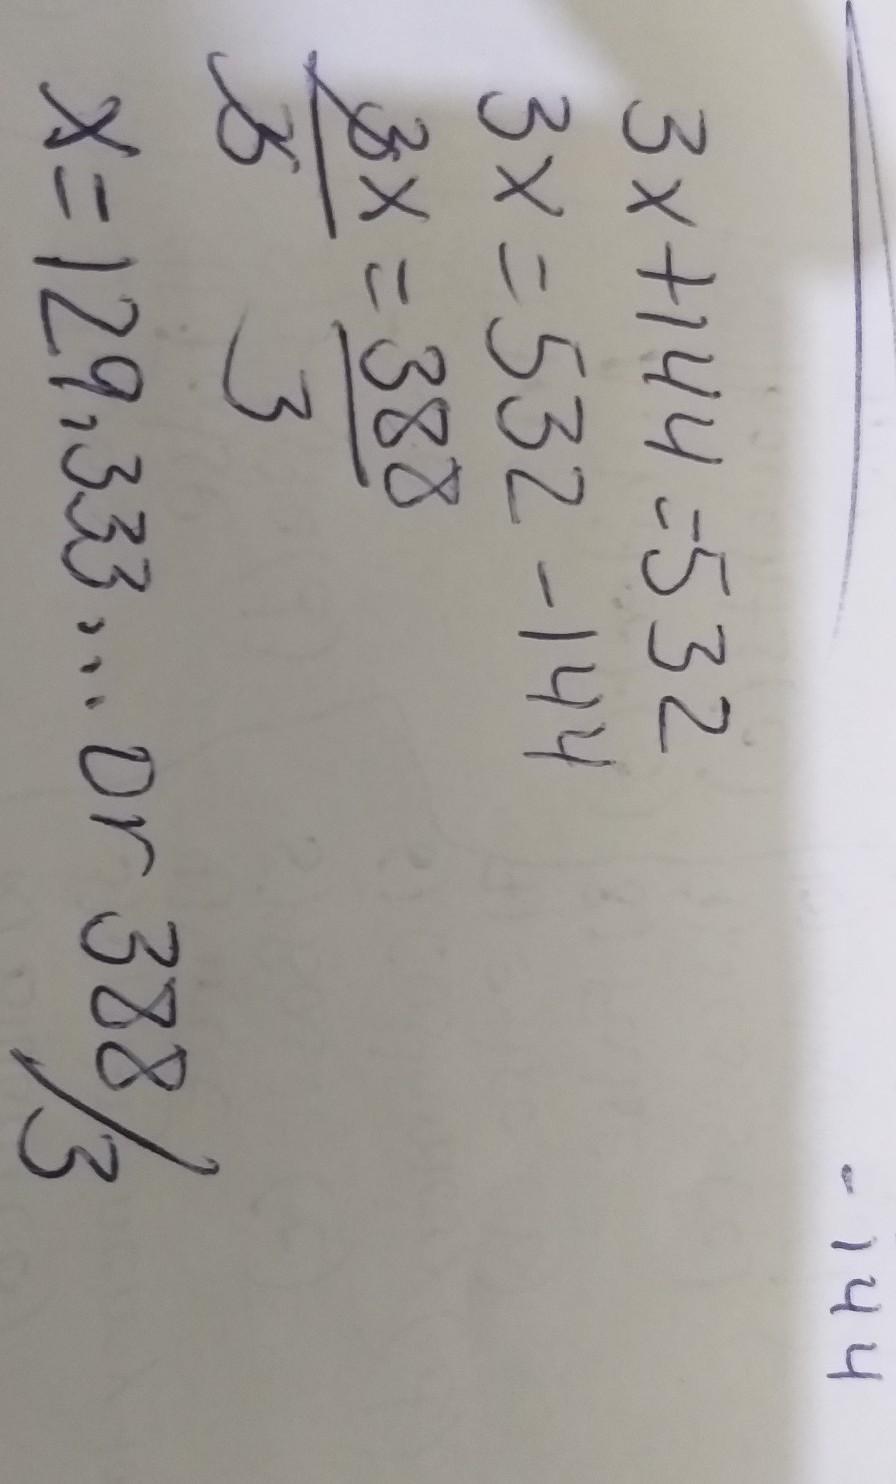 -144
3x+144=532
3x=532-144
3x=388
3 3
x=129.333... or 388/3